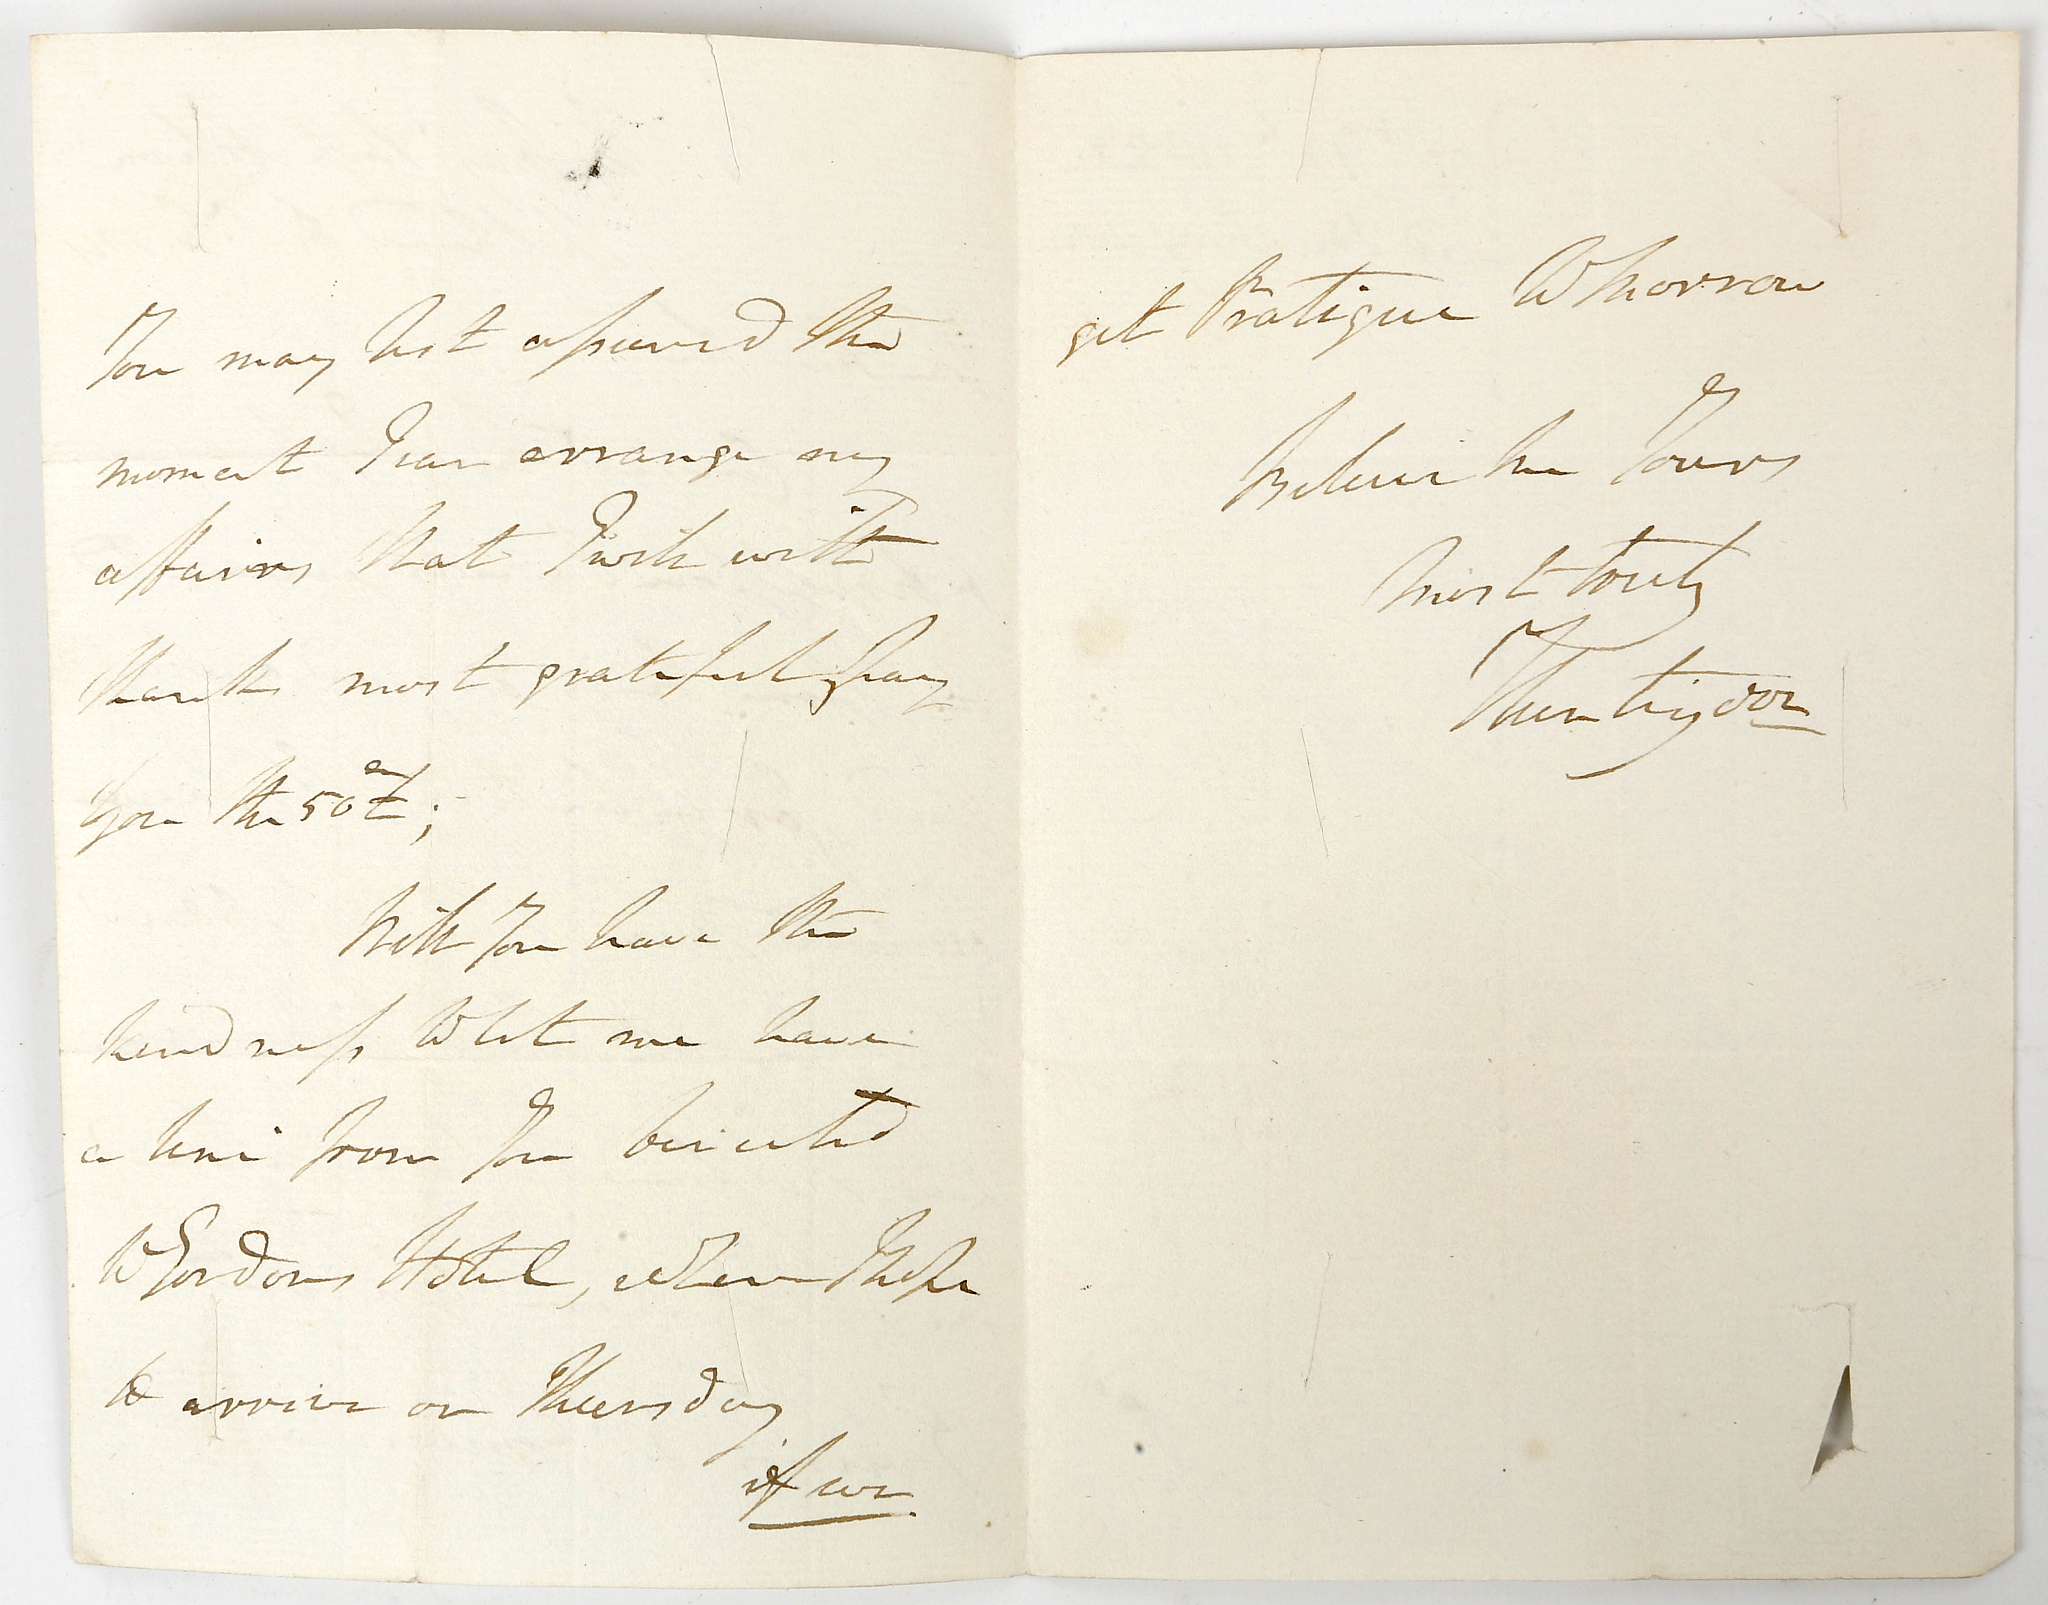 You may rest assured the
moment I can arrange my
affairs that I will with
thanks most gratefully pay
you the 50£;
Will you have the
kindness to let me have
a line from you directed
to Gordons Hotel, where I hope
to arrive on Thursday
if we
get Pratique to morrow
Believe me Yours
most truly
Huntingdon